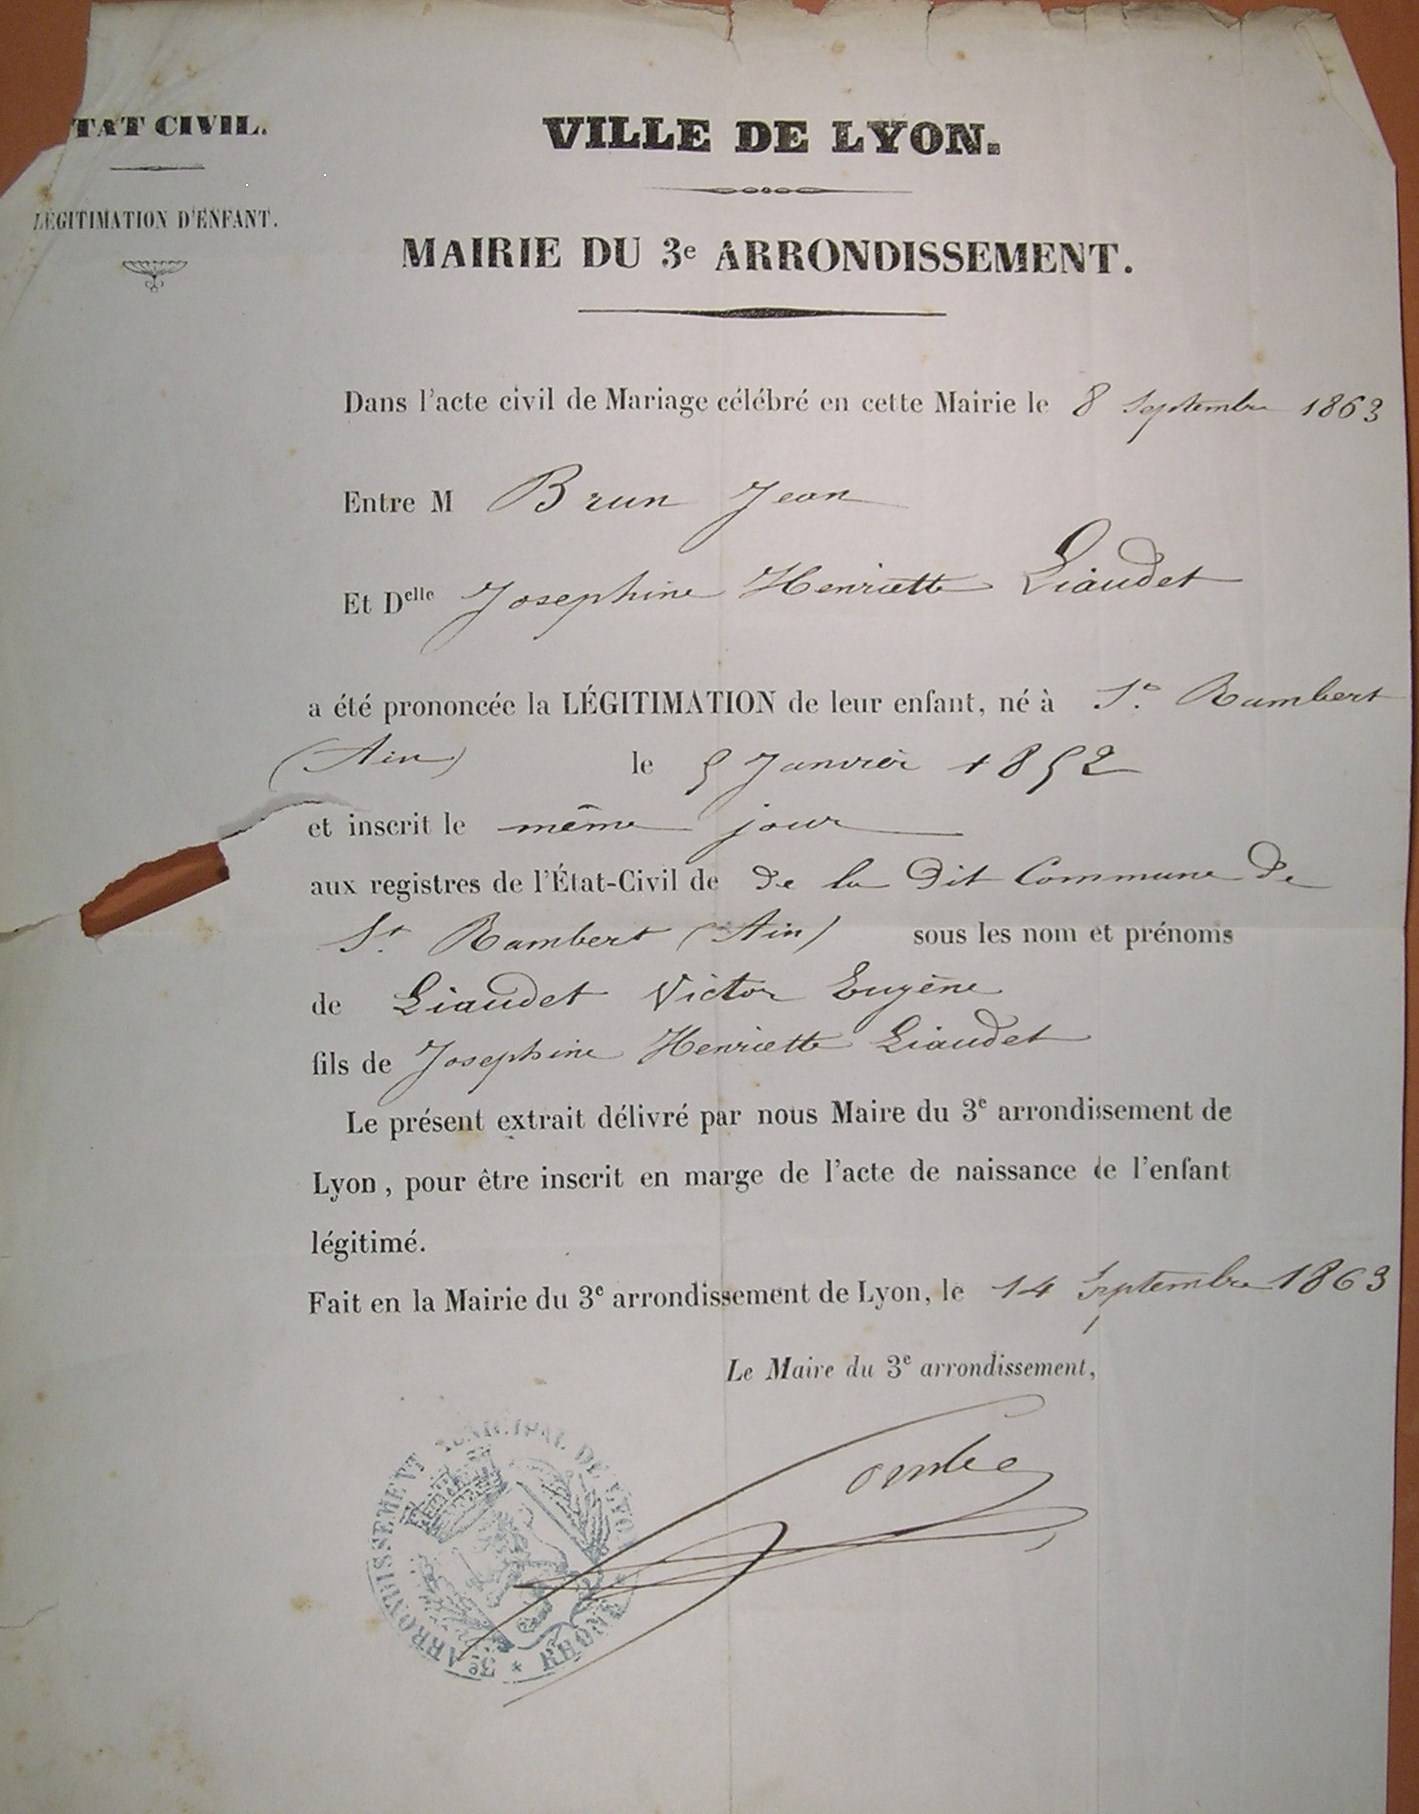 TAT CIVIL.
LÉGITIMATION D'ENFANT.
VILLE DE LYON.
MAIRIE DU 3e ARRONDISSEMENT.
Dans l'acte civil de Mariage célébré en cette Mairie le 8 Septembre 1863
Entre M Brun Jean
Et Delle Josephine Henriette Liaudet
a été prononcée la LÉGITIMATION de leur enfant, né à St. Rambert
(Ain) le 5 Janvier 1852
et inscrit le même jour
aux registres de l'État-Civil de de la Dit Commune de
St. Rambert (Ain) sous les nom et prénoms
de Liaudet Victor Eugène
fils de Josephine Henriette Liaudet
Le présent extrait délivré par nous Maire du 3e arrondissement de
Lyon, pour être inscrit en marge de l'acte de naissance de l'enfant
légitimé.
Fait en la Mairie du 3e arrondissement de Lyon, le 14 Septembre 1863
Le Maire du 3e arrondissement,
3e ARRONDISSEMENT MUNICIPAL DE LYON * RHONE *